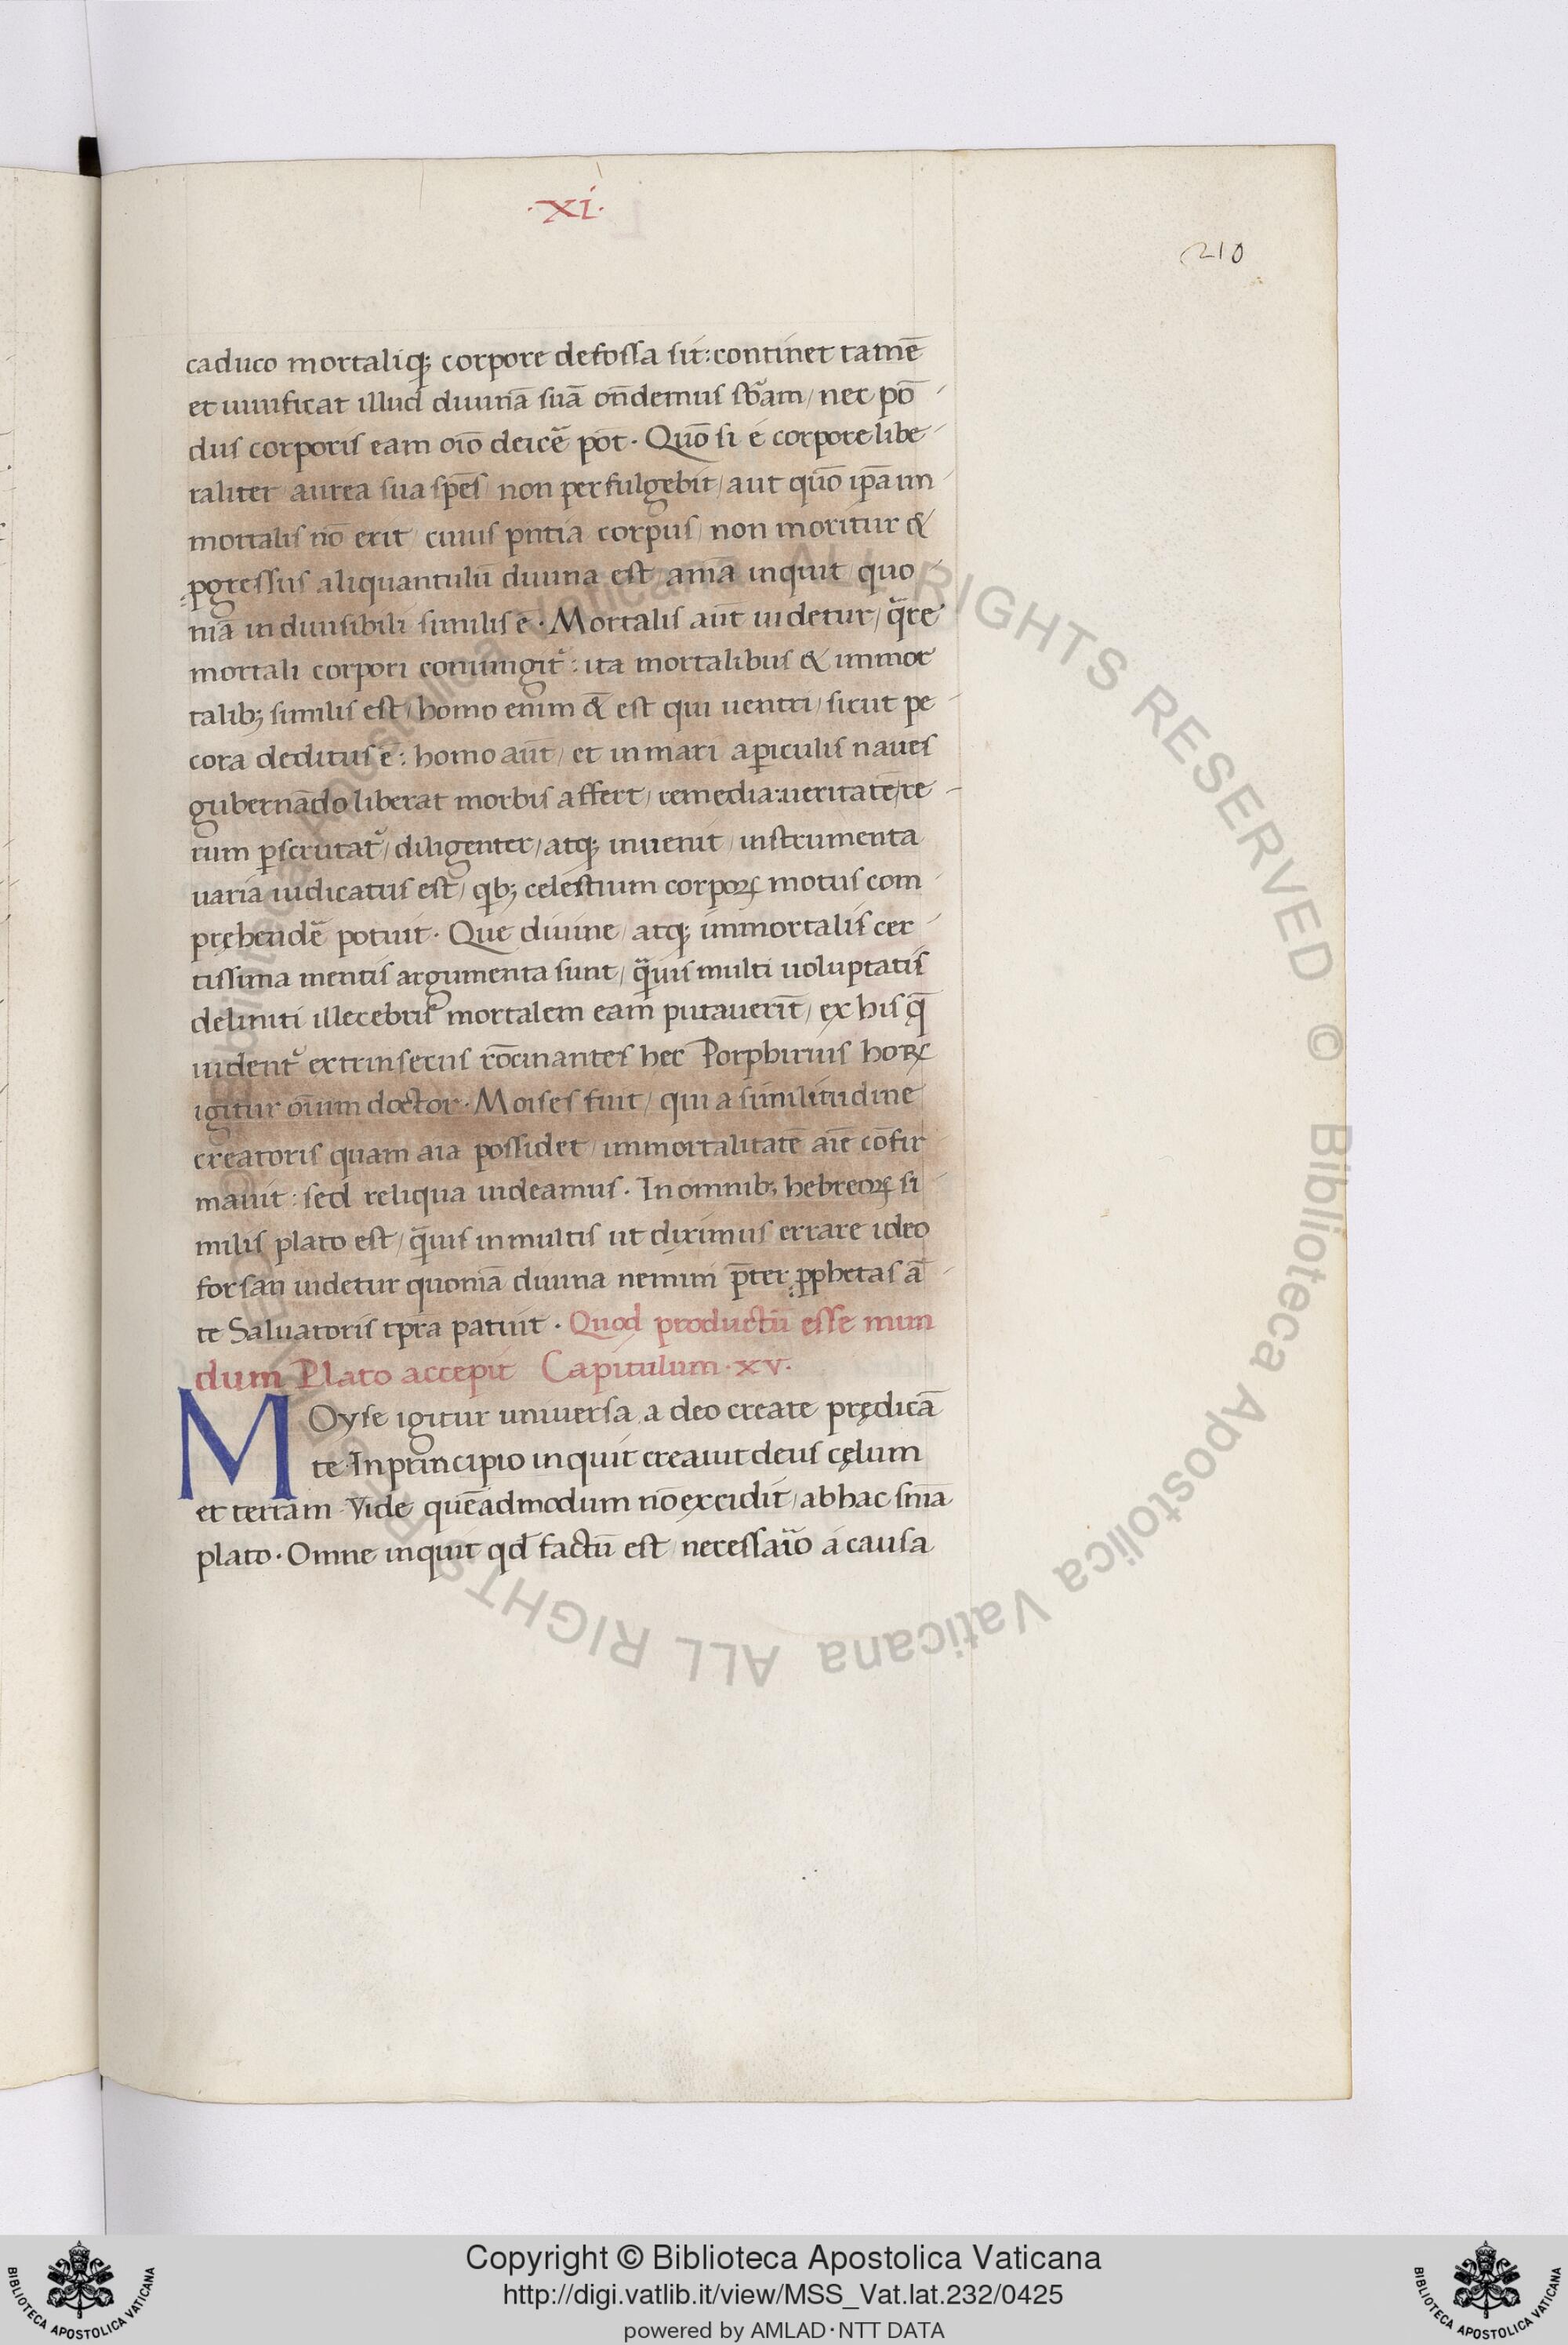 ·xi·
210
caduco mortaliq; corpore defossa sit: continet tamē
et uiuificat illud diuinā suā oñdemus sb̃am/ nec pō
dus corporis eam oīo deicẽ pōt · Quō si é corpore libe
raliter aurea sua spēs/ non perfulgebit/ aut quō ip̄a im
mortalis nō erit/ cuius pñtia corpus/ non moritur &
pgressus aliquantulū diuina est amā inquit/ quo
niā indiuisibili similis ē · Mortalis aūt uidetur/ q̄re
mortali corpori coniungit᷑: ita mortalibus & immor
talib; similis est/ homo enim & est qui uentri/ sicut pe
cora deditus ē: homo aūt/ et in mari a ꝑiculis naues
gubernādo liberat morbis affert/ remedia: ueritatē/ re
rum ꝑscrutat᷑/ diligenter/ atq; inuenit/ instrumenta
uaria iudicatus est/ qb; celestium corpoꝝ motus com
pręhendẽ potuit · Que diuine/ atq; immortalis cer
tissima mentis argumenta sunt/ q̄uis multi uoluptatis
deliniti illecebris mortalem eam putauerīt/ ex his q̄
uident᷑ extrinsecus rōcinantes hec Porphirius hoꝝ
igitur oīum doctor · Moises fuit/ qui a similitudine
creatoris quam aīa possidet/ immortalitatē aīe cōfir
mauit: sed reliqua uideamus · In omnib; hebreoꝝ si
milis plato est/ q̄uis in multis ut diximus errare ideo
forsan uidetur quoniā diuina nemini p̄ter ꝓphetas ā
te Saluatoris tp̄ra patuit · Quod productū esse mun
dum Plato accepit Capitulum · xv ·
MOyse igitur universa a deo create prędicā
te · In principio inquit creauit deus cęlum
et terram Vide quēadmodum nō excidit/ ab hac sñia
plato · Omne inquit qd̄ factū est/ necessario á causa
Copyright © Biblioteca Apostolica Vaticana
http://digi.vatlib.it/view/MSS_Vat.lat.232/0425
powered by AMLAD·NTT DATA